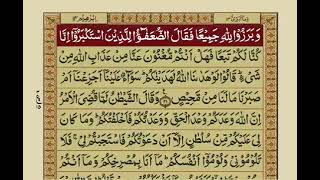 وَبَرَزُوْا لِلّٰهِ جَمِيْعًا فَقَالَ الضُّعَفٰٓؤُا لِلَّذِيْنَ اسْتَكْبَرُوْٓا اِنَّا
كُنَّا لَكُمْ تَبَعًا فَهَلْ اَنْتُمْ مُّغْنُوْنَ عَنَّا مِنْ عَذَابِ اللّٰهِ مِنْ
شَيْءٍ ؕ قَالُوْا لَوْ هَدٰىنَا اللّٰهُ لَهَدَيْنٰكُمْ ؕ سَوَآءٌ عَلَيْنَآ اَجَزِعْنَآ اَمْ
صَبَرْنَا مَا لَنَا مِنْ مَّحِيْصٍ وَقَالَ الشَّيْطٰنُ لَمَّا قُضِيَ الْاَمْرُ
اِنَّ اللّٰهَ وَعَدَكُمْ وَعْدَ الْحَقِّ وَوَعَدْتُّكُمْ فَاَخْلَفْتُكُمْ ؕ وَمَا كَانَ
لِيَ عَلَيْكُمْ مِّنْ سُلْطٰنٍ اِلَّآ اَنْ دَعَوْتُكُمْ فَاسْتَجَبْتُمْ لِيْ ۚ فَلَا
تَلُوْمُوْنِيْ وَلُوْمُوْٓا اَنْفُسَكُمْ ؕ مَآ اَنَا بِمُصْرِخِكُمْ وَمَآ اَنْتُمْ